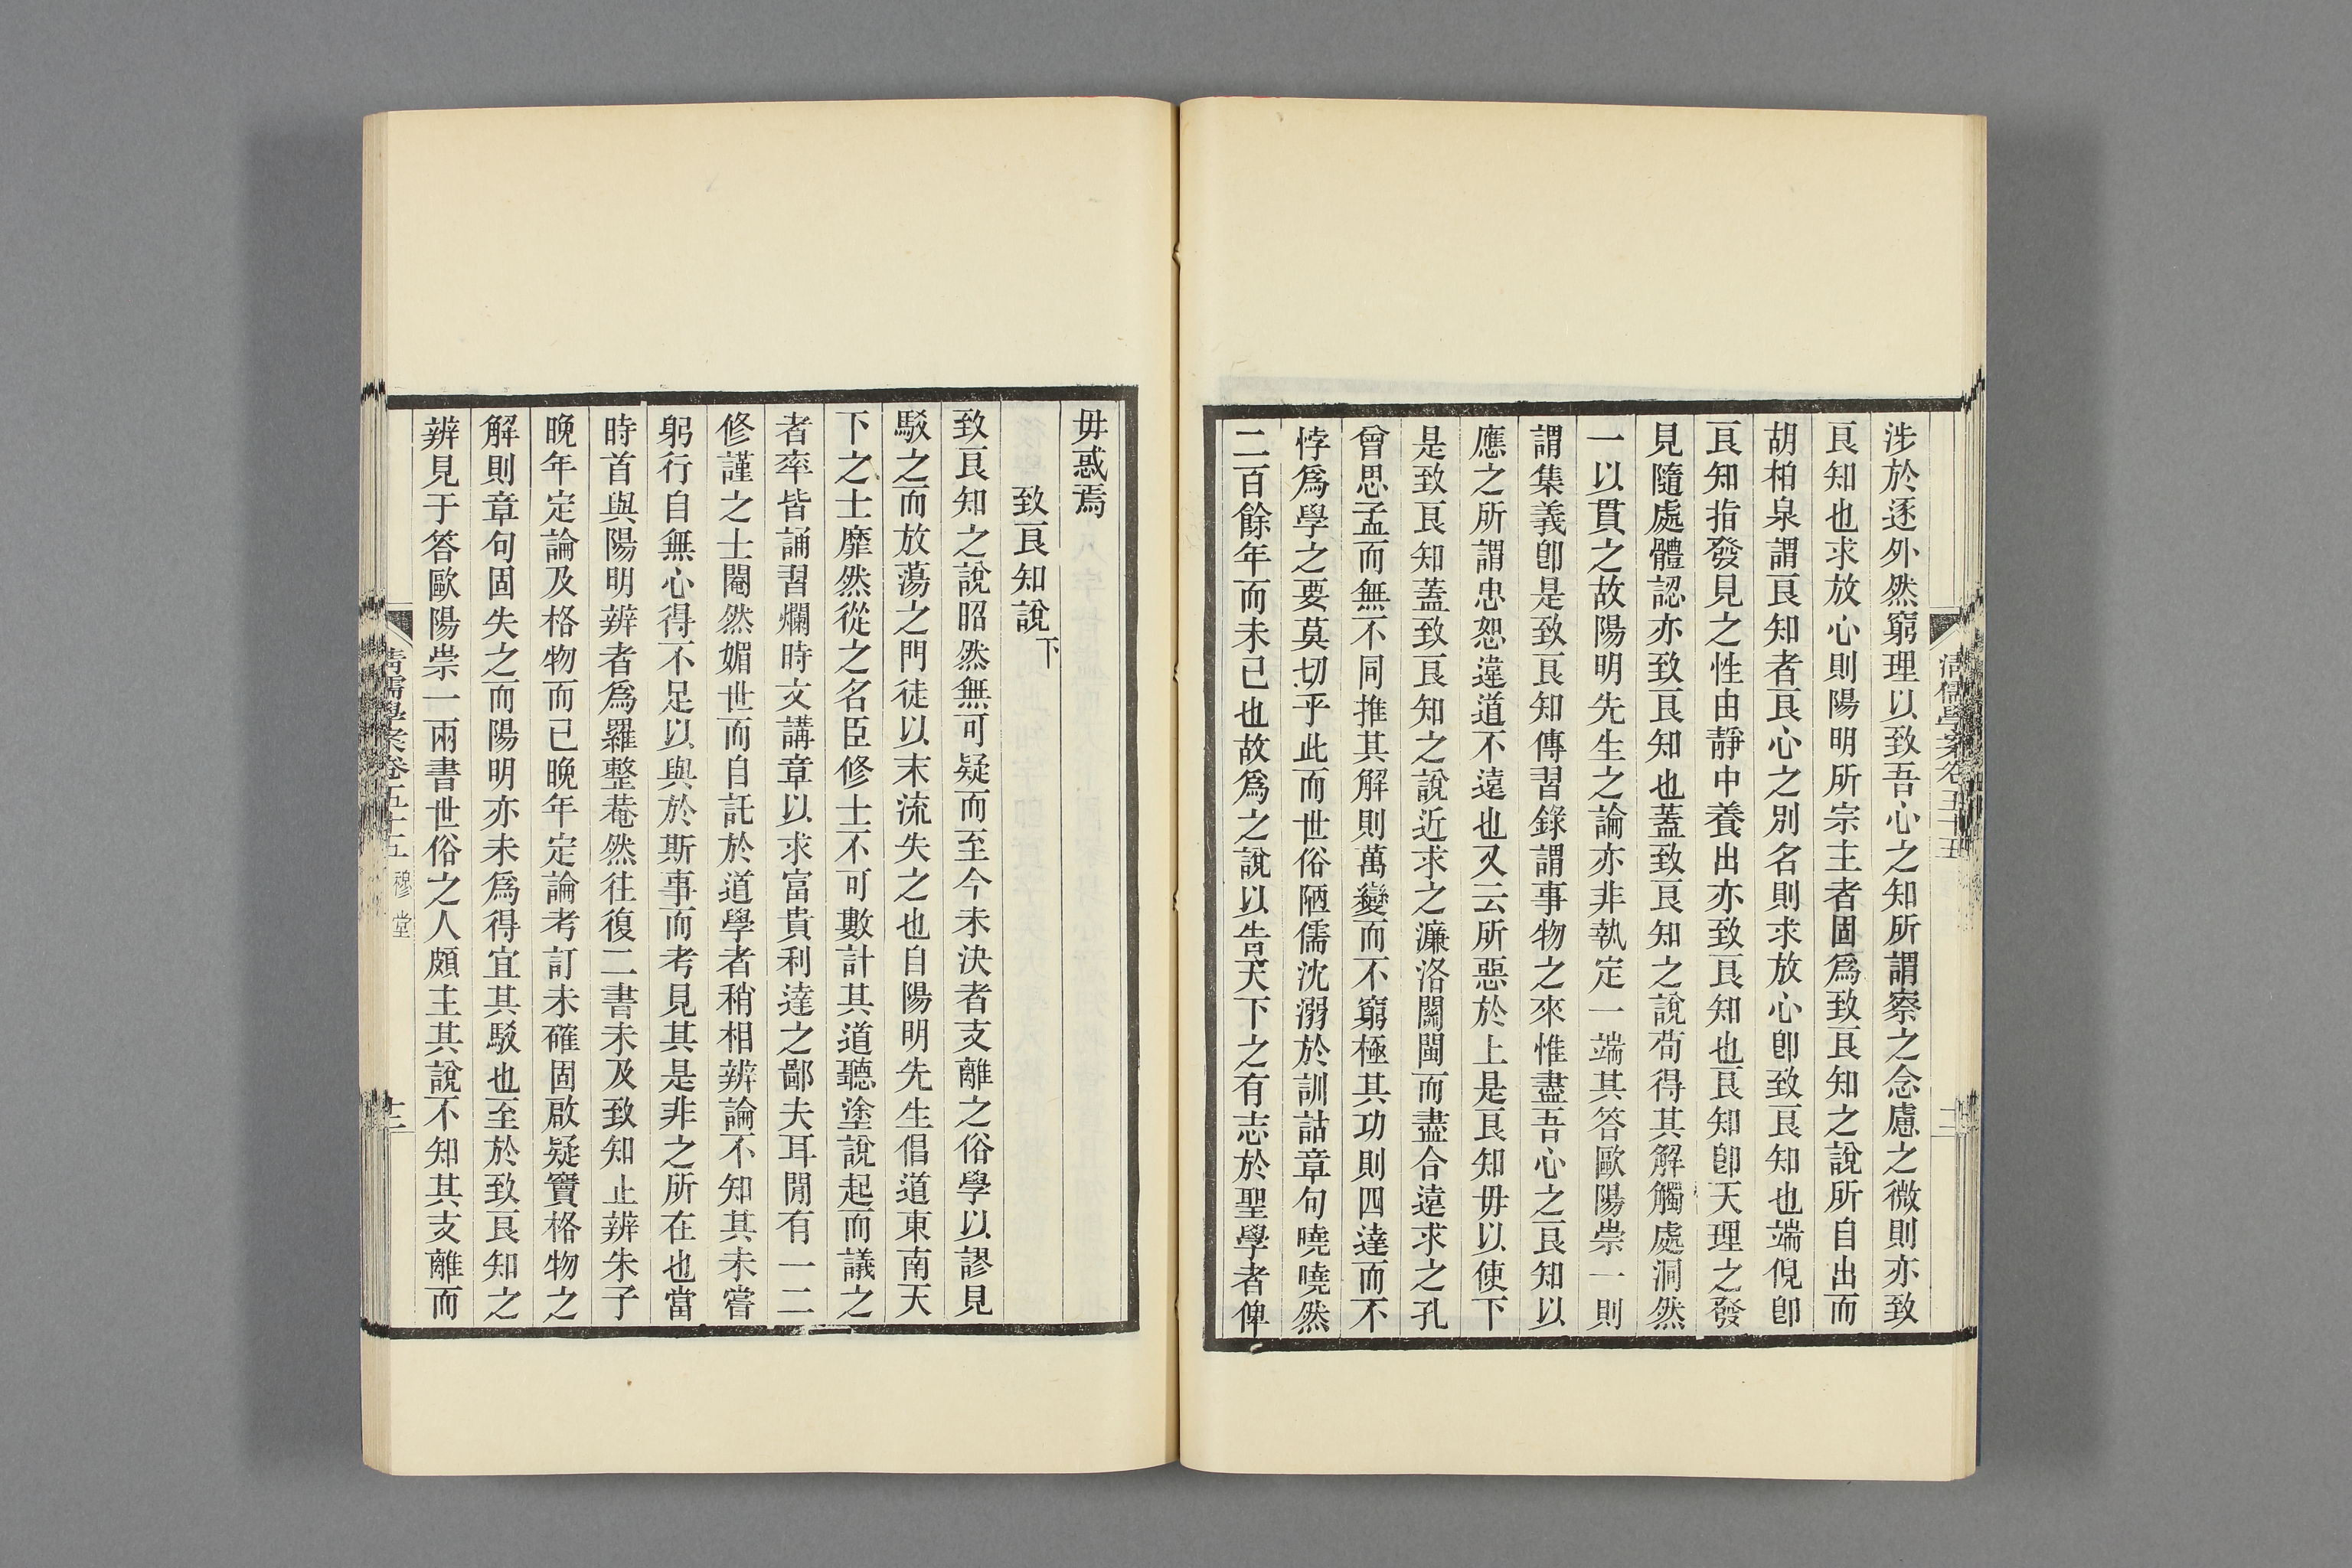 涉於逐外然窮理以致吾心之知所謂察之念慮之微則亦致
良知也求放心則陽明所宗主者固爲致良知之說所自出而
胡柏泉謂良知者良心之別名則求放心卽致良知也端倪卽
良知指發見之性由靜中養出亦致良知也良知卽天理之發
見隨處體認亦致良知也蓋致良知之說苟得其解觸處洞然
一以貫之故陽明先生之論亦非執定一端其答歐陽崇一則
謂集義卽是致良知傳習錄謂事物之來惟盡吾心之良知以
應之所謂忠恕違道不遠也又云所惡於上是良知毋以使下
是致良知蓋致良知之說近求之濂洛關閩而盡合遠求之孔
曾思孟而無不同推其解則萬變而不窮極其功則四達而不
悖爲學之要莫切乎此而世俗陋儒沈溺於訓詁章句曉曉然
二百餘年而未已也故爲之說以告天下之有志於聖學者俾
毋惑焉
致良知說下
致良知之說昭然無可疑而至今未決者支離之俗學以謬見
駁之而放蕩之門徒以末流失之也自陽明先生倡道東南天
下之士靡然從之名臣修士不可數計其道聽塗說起而議之
者率皆誦習爛時文講章以求富貴利達之鄙夫耳閒有一二
修謹之士闇然媚世而自託於道學者稍相辨論不知其未嘗
躬行自無心得不足以與於斯事而考見其是非之所在也當
時首與陽明辨者爲羅整菴然往復二書未及致知止辨朱子
晚年定論及格物而已晚年定論考訂未確固啟疑竇格物之
解則章句固失之而陽明亦未爲得宜其駁也至於致良知之
辨見于答歐陽崇一兩書世俗之人頗主其說不知其支離而
清儒學案卷五十五 穆堂